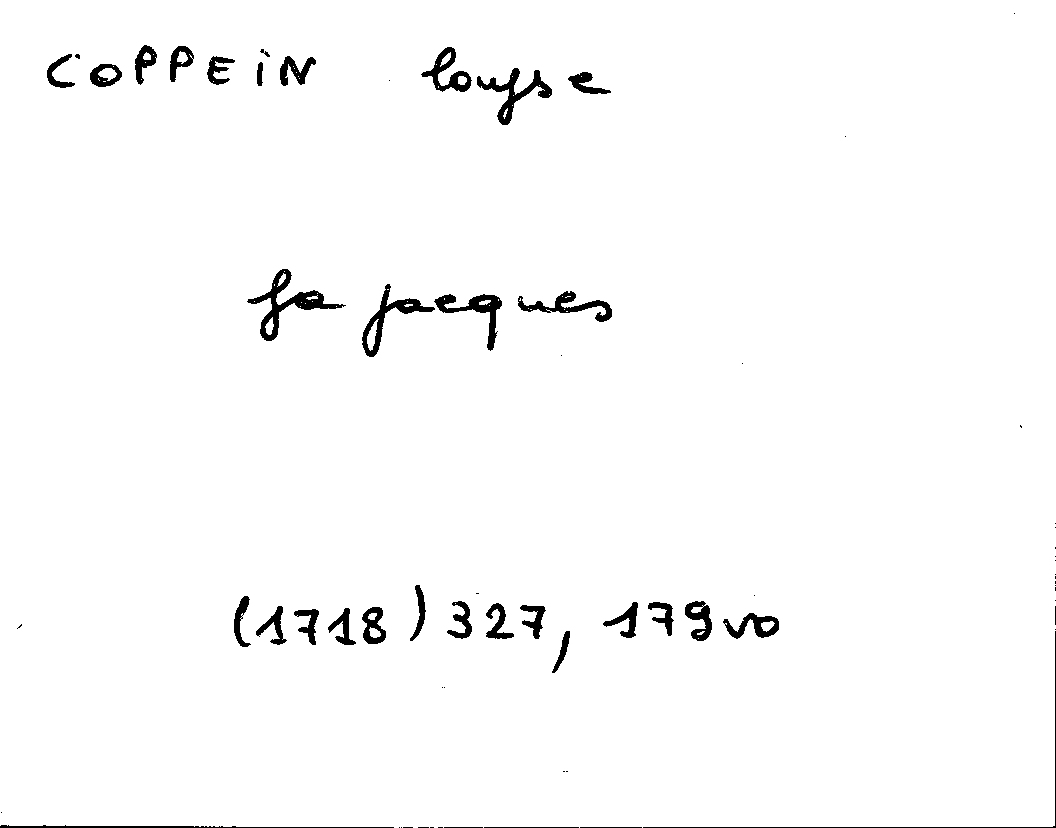 COPPEiN louyse
fa jacques
(1718) 327, 179vo